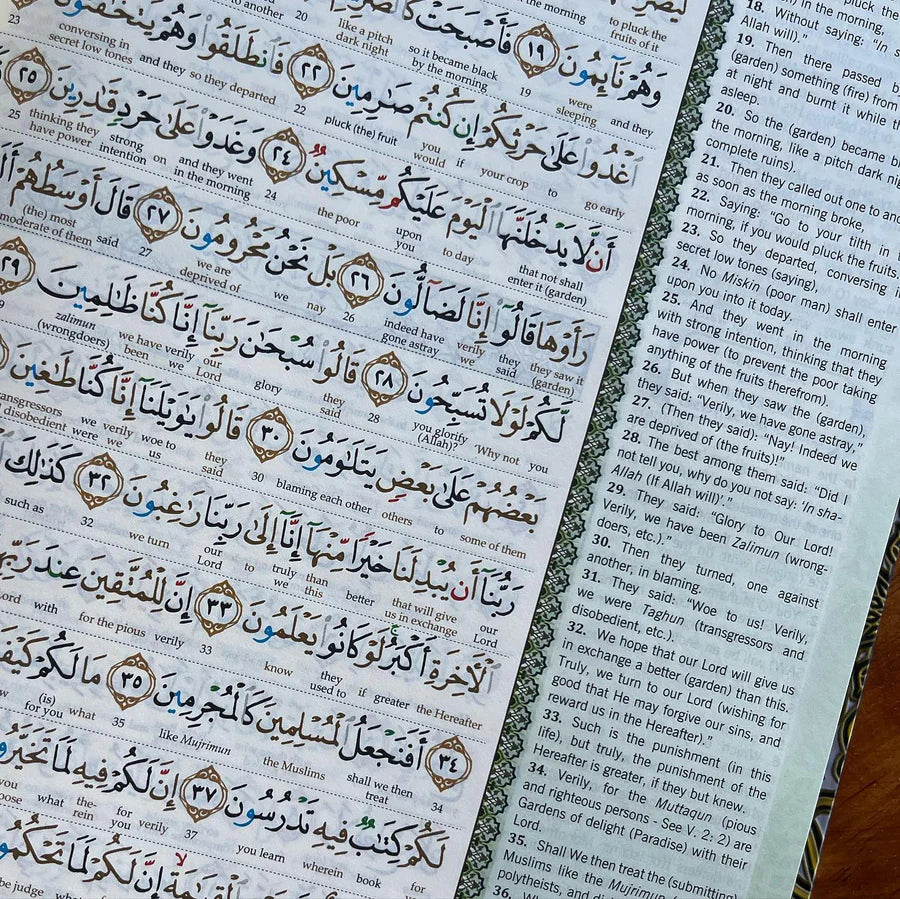 وَهُمْ نَآئِمُونَ ١٩ فَأَصْبَحَتْ
to pluck the fruits of it
in the morning
like a pitch dark night
so it became black by the morning 19 were sleeping and they
ٱغْدُوا۟ عَلَىٰ حَرْثِكُمْ إِن كُنتُمْ صَـٰرِمِينَ ٢٢ فَٱنطَلَقُوا۟ وَهُمْ يَتَخَـٰفَتُونَ
go early to your crop if you would pluck (the) fruit 22 so they departed and they conversing in secret low tones 23
أَن لَّا يَدْخُلَنَّهَا ٱلْيَوْمَ عَلَيْكُم مِّسْكِينٌ ٢٤ وَغَدَوْا۟ عَلَىٰ حَرْدٍ قَـٰدِرِينَ ٢٥
that not shall enter it (garden) to day upon you the poor 24 and they went in the morning on strong intention thinking they have power 25
رَأَوْهَا قَالُوٓا۟ إِنَّا لَضَآلُّونَ ٢٦ بَلْ نَحْنُ مَحْرُومُونَ ٢٧ قَالَ أَوْسَطُهُمْ
they saw it (garden) they said verily we indeed have gone astray 26 nay we we are deprived of 27 said (the) most moderate of them
لَّكُمْ لَوْلَا تُسَبِّحُونَ ٢٨ قَالُوا۟ سُبْحَـٰنَ رَبِّنَآ إِنَّا كُنَّا ظَـٰلِمِينَ ٢٩
you 'Why not you glorify (Allah)?' 28 they said glory our Lord verily we have been zalimun (wrongdoers)
بَعْضُهُمْ عَلَىٰ بَعْضٍ يَتَلَـٰوَمُونَ ٣٠ قَالُوا۟ يَـٰوَيْلَنَآ إِنَّا كُنَّا طَـٰغِينَ
some of them to others blaming each other 30 they said woe to us verily we were
رَبُّنَآ أَن يُبْدِلَنَا خَيْرًا مِّنْهَآ إِنَّآ إِلَىٰ رَبِّنَا رَٰغِبُونَ ٣٢ كَذَٰلِكَ
our Lord that will give us in exchange better than this truly we to our Lord we turn 32 such as
ٱلْـَٔاخِرَةِ أَكْبَرُ لَوْ كَانُوا۟ يَعْلَمُونَ ٣٣ إِنَّ لِلْمُتَّقِينَ عِندَ رَبِّهِمْ
the Hereafter greater if they used to know 33 verily for the pious with
٣٤ أَفَنَجْعَلُ ٱلْمُسْلِمِينَ كَٱلْمُجْرِمِينَ ٣٥ مَا لَكُمْ كَيْفَ
34 shall we then treat the Muslims like Mujrimun 35 what (is) for you
لَكُمْ كِتَـٰبٌ فِيهِ تَدْرُسُونَ ٣٧ إِنَّ لَكُمْ فِيهِ لَمَا تَخَيَّرُونَ
for you book wherein you learn 37 verily for you therein what you
إِنَّ لَكُمْ لَمَا تَحْكُمُونَ
in the morning,
18. Without saying: "In
Allah will)."
19. Then there passed
(garden) something (fire) from
at night and burnt it while
asleep.
20. So the (garden) became
the morning, like a pitch dark
complete ruins).
21. Then they called out one to
as soon as the morning broke,
22. Saying: "Go to your tilth in
morning, if you would pluck the fruits
23. So they departed, conversing
secret low tones (saying),
24. No Miskin (poor man) shall enter
upon you into it today.
25. And they went in the morning
with strong intention, thinking that they
have power (to prevent the poor taking
anything of the fruits therefrom).
26. But when they saw the (garden),
they said: "Verily, we have gone astray,"
27. (Then they said): "Nay! Indeed we
are deprived of (the fruits)!"
28. The best among them said: "Did I
not tell you, why do you not say: 'In sha-
Allah (If Allah will)'."
29. They said: "Glory to Our Lord!
Verily, we have been Zalimun (wrong-
doers, etc.)."
30. Then they turned, one against
another, in blaming.
31. They said: "Woe to us! Verily,
we were Taghun (transgressors and
disobedient, etc.).
32. We hope that our Lord will give us
in exchange a better (garden) than this.
Truly, we turn to our Lord (wishing for
good that He may forgive our sins, and
reward us in the Hereafter)."
33. Such is the punishment (in this
life), but truly, the punishment of the
Hereafter is greater, if they but knew.
34. Verily, for the Muttaqun (pious
and righteous persons - See V. 2: 2) are
Gardens of delight (Paradise) with their
Lord.
35. Shall We then treat the (submitting)
Muslims like the Mujrimun
polytheists, and
36.